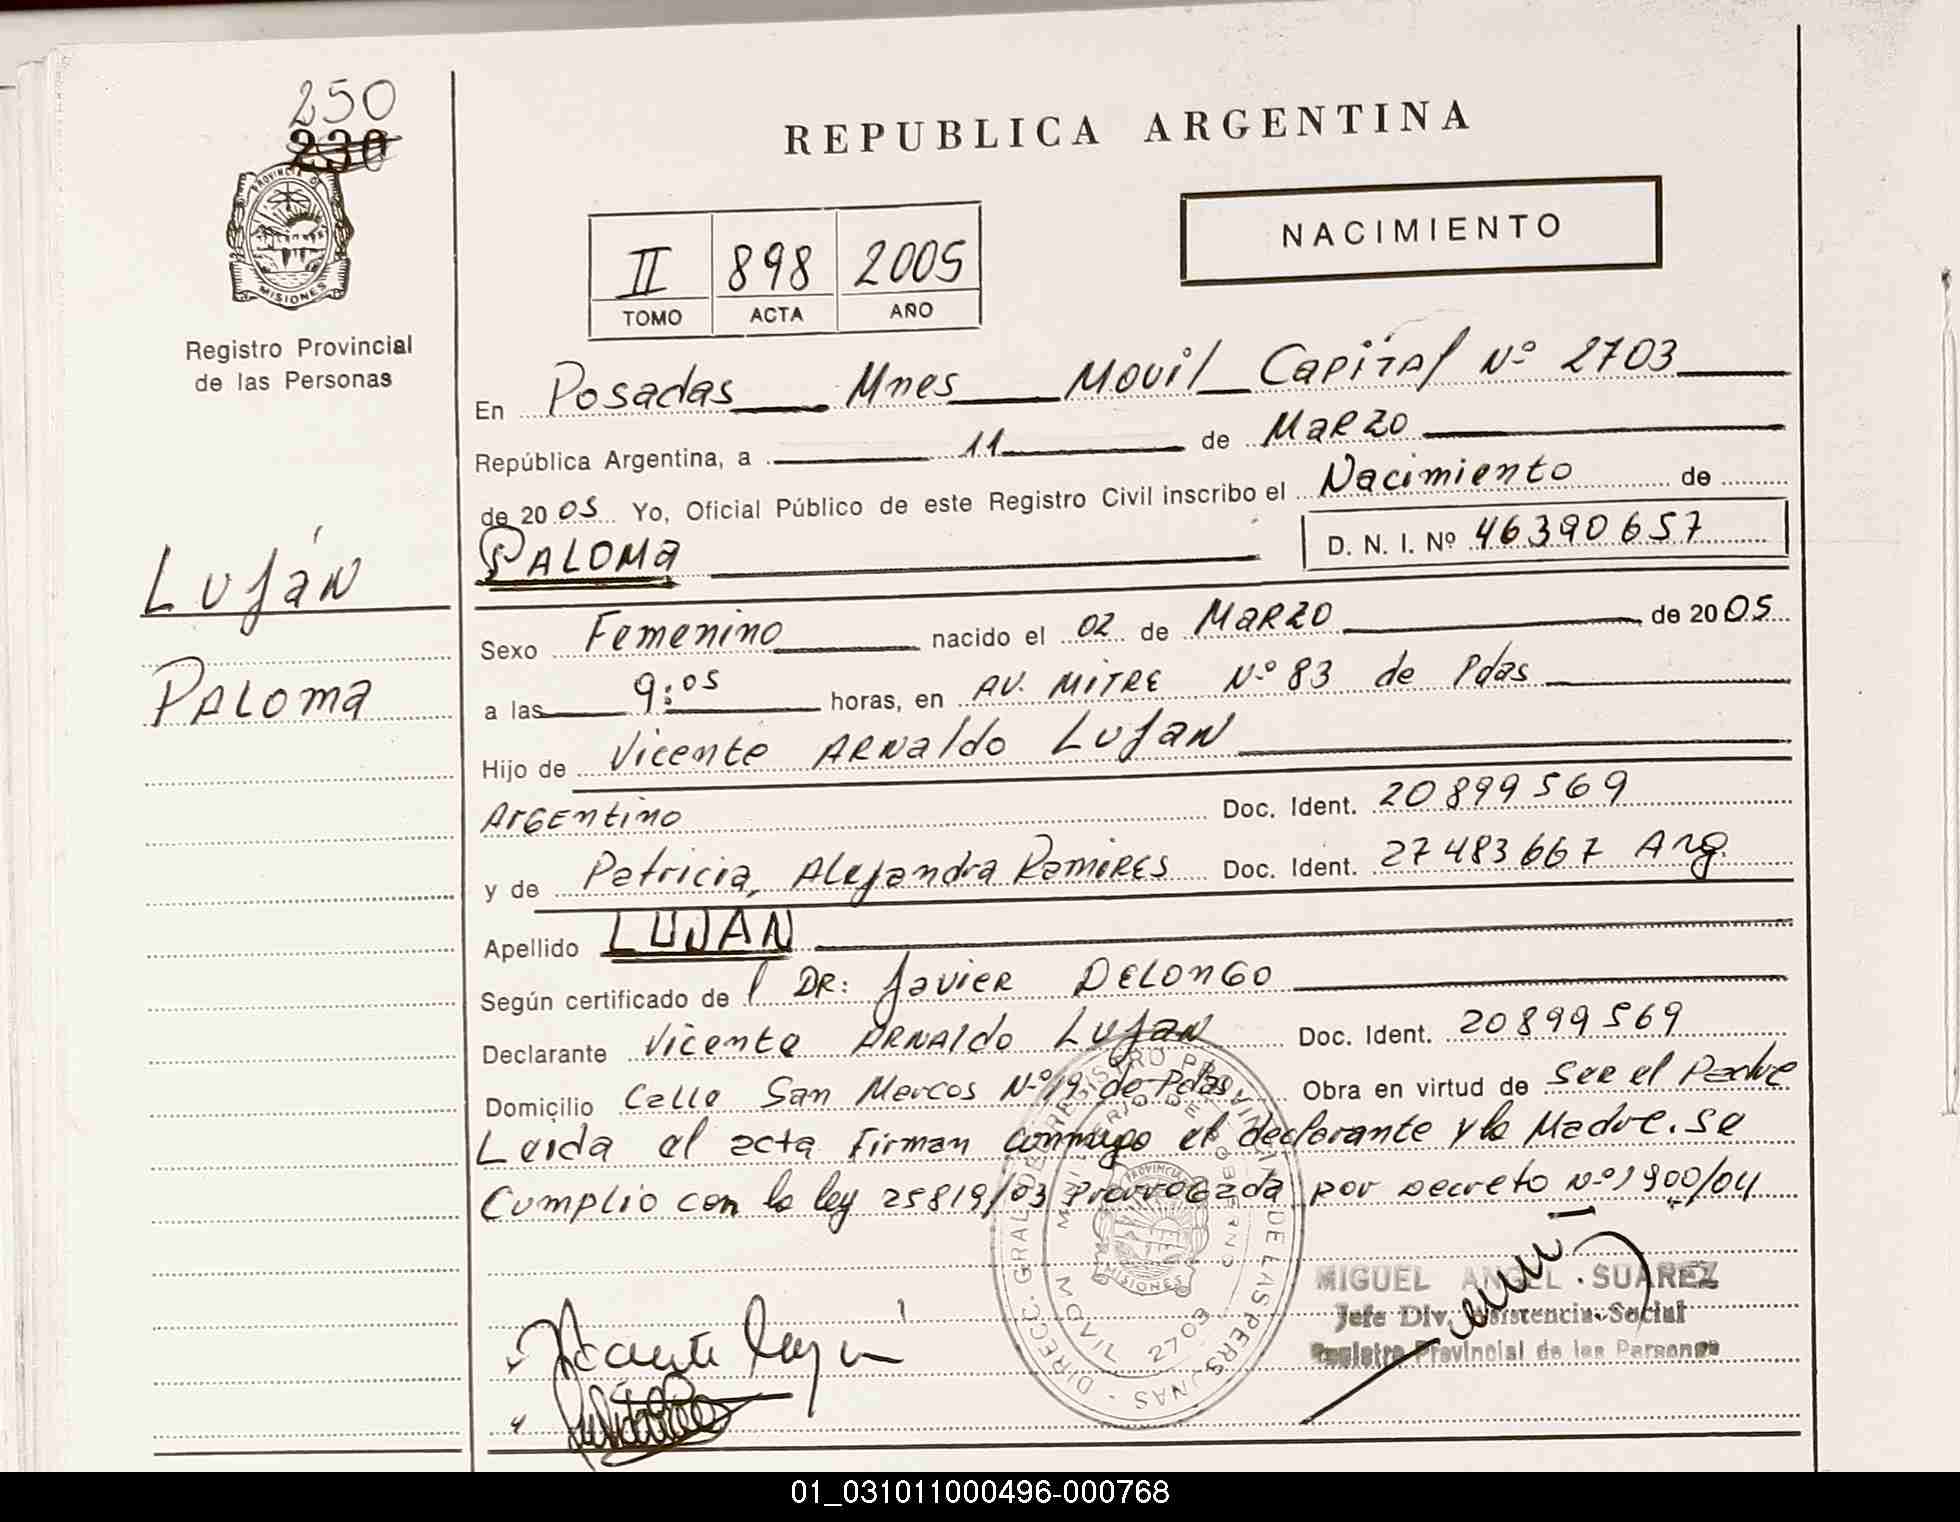 250
230
PROVINCIA D
MISIONES
Registro Provincial
de las Personas
Luján
Paloma
REPUBLICA ARGENTINA
NACIMIENTO
II 898 2005
TOMO ACTA AÑO
En Posadas Mnes Movil Capital Nº 2703
República Argentina, a 11 de Marzo
de 2005 Yo, Oficial Público de este Registro Civil inscribo el Nacimiento de
PALOMA D. N. I. Nº 46390657
Sexo Femenino nacido el 02 de Marzo de 2005
a las 9:05 horas, en Av. Mitre Nº 83 de Pdas
Hijo de Vicente Arnaldo Lujan
Argentino Doc. Ident. 20899569
y de Patricia, Alejandra Ramires Doc. Ident. 27483667 Arg
Apellido LUJAN
Según certificado de DR: Javier Delongo
Declarante Vicente Arnaldo Lujan Doc. Ident. 20899569
Domicilio Calle San Marcos Nº 19 de Pdas Obra en virtud de ser el Padre
Leida el acta firman conmigo el declarante y la Madre. Se
Cumplio con la ley 25819/03 Prorrogada por Decreto Nº 1900/04
DIRECC. GRAL. DE REGISTRO PROVINCIAL DE LAS PERSONAS
MINISTERIO DE GOBIERNO
PROVINCIA
MISIONES
MOVIL 2703
MIGUEL ANGEL SUAREZ
Jefe Div. Asistencia Social
Registro Provincial de las Personas
Vicente Lujan
01_031011000496-000768